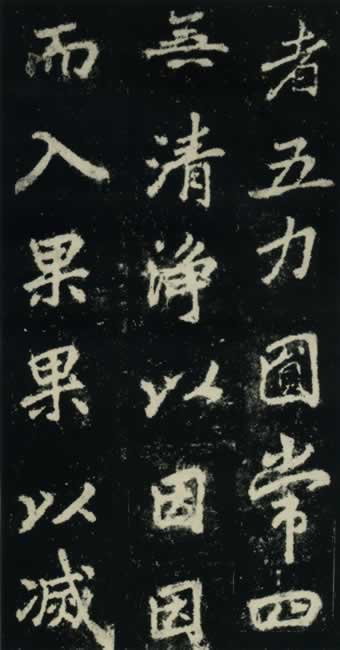 者五力圓常四
無清淨以因因
而入果果以滅